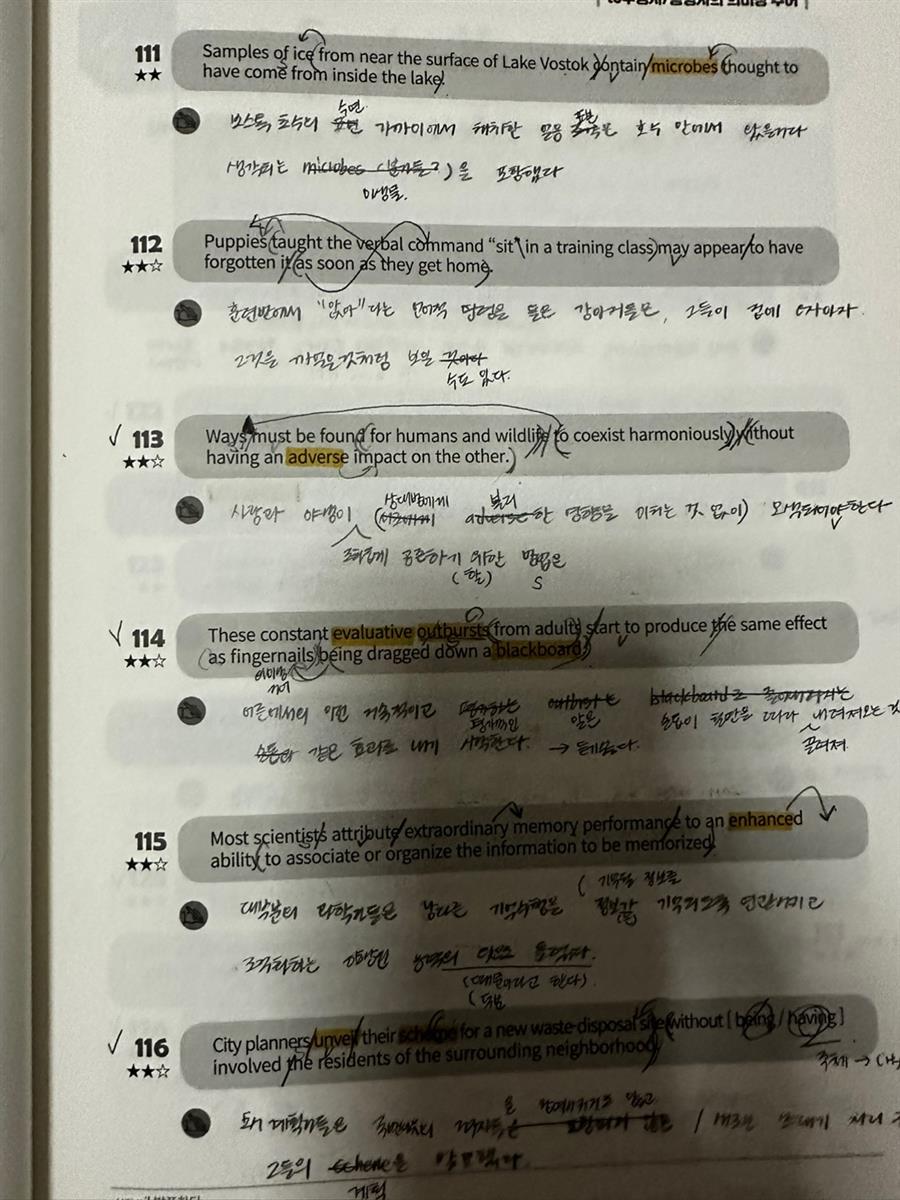 111
★★
Samples of ice from near the surface of Lake Vostok contain microbes thought to
have come from inside the lake.
수면
보스톡 호수의 표면 가까이에서 채취한 얼음 호수 안에서
생각되는 microbes 을 포함했다
미생물.
112
★★☆
Puppies taught the verbal command "sit" in a training class may appear to have
forgotten it as soon as they get home.
훈련반에서 "앉아"라는 언어적 명령을 강아지들은, 그들이 집에 오자마자
그것을 까먹은것처럼 보일 것이다
수도 있다.
113
★★☆
Ways must be found for humans and wildlife to coexist harmoniously without
having an adverse impact on the other.
상대방에게 불리
사람과 야생이 (서로에게 adverse한 영향을 미치는 것 없이) 모색되어야한다
조화롭게 공존하기 위한 방법은
(할) S
114
★★☆
These constant evaluative outbursts from adults start to produce the same effect
as fingernails being dragged down a blackboard.
어른에서의 이런 지속적이고 outburst는
평가적인 손톱이 칠판을 따라 내려져오는 것
같은 효과를 내기 시작한다. →
끌려져
115
★★☆
Most scientists attribute extraordinary memory performance to an enhanced
ability to associate or organize the information to be memorized.
(기억될 정보를
대부분의 과학자들은 남다른 기억수행은 정보가 기억되도록 연관시키고
조직화하는 향상된 능력의
(때문이라고 한다).
(덕분
116
★★☆
City planners unveil their scheme for a new waste-disposal site without [ being / having ]
involved the residents of the surrounding neighborhood.
주체 →
을 참여시키지 않고
도시 계획자들은 주변이웃의 거주자들은 포함하지 않은 / 새로운 쓰레기 처리
그들의 scheme을 발표했다.
계획